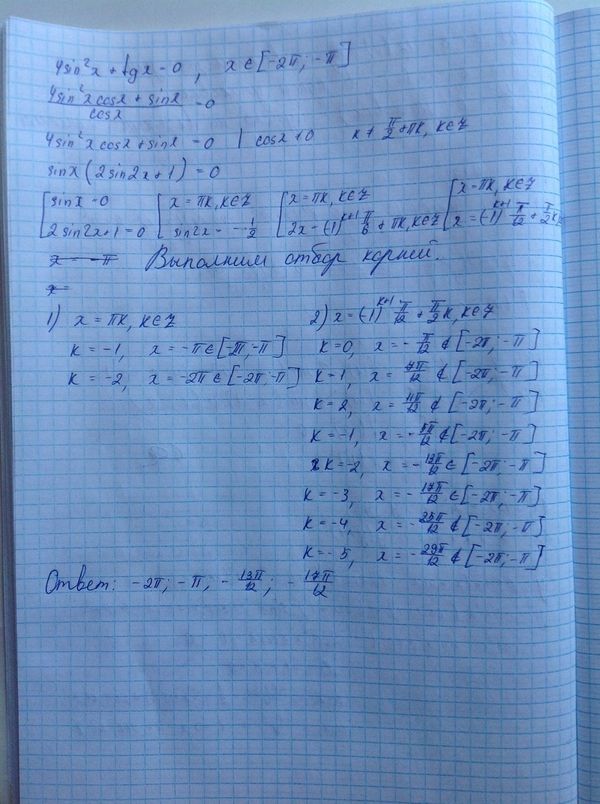 4sin²x + tgx = 0, x ∈ [-2π; -π]
(4sin²x cosx + sinx)/cosx = 0
4sin²x cosx + sinx = 0 | cosx ≠ 0 x ≠ π/2 + πk, k∈Z
sinx(2sin2x + 1) = 0
[ sinx = 0 [ x = πk, k∈Z [ x = πk, k∈Z [ x = πk, k∈Z
2sin2x + 1 = 0 sin2x = -1/2 2x = (-1)^(k+1) π/6 + πk, k∈Z x = (-1)^(k+1) π/12 + π/2 k, k∈Z
x = -π Выполним отбор корней.
x =
1) x = πk, k∈Z 2) x = (-1)^(k+1) π/12 + π/2 k, k∈Z
k = -1, x = -π ∈ [-2π; -π] k = 0, x = -π/12 ∉ [-2π; -π]
k = -2, x = -2π ∈ [-2π; -π] k = 1, x = 7π/12 ∉ [-2π; -π]
k = 2, x = 11π/12 ∉ [-2π; -π]
k = -1, x = -5π/12 ∉ [-2π; -π]
k = -2, x = -13π/12 ∈ [-2π; -π]
k = -3, x = -17π/12 ∈ [-2π; -π]
k = -4, x = -25π/12 ∉ [-2π; -π]
k = -5, x = -29π/12 ∉ [-2π; -π]
Ответ: -2π; -π, -13π/12; -17π/12